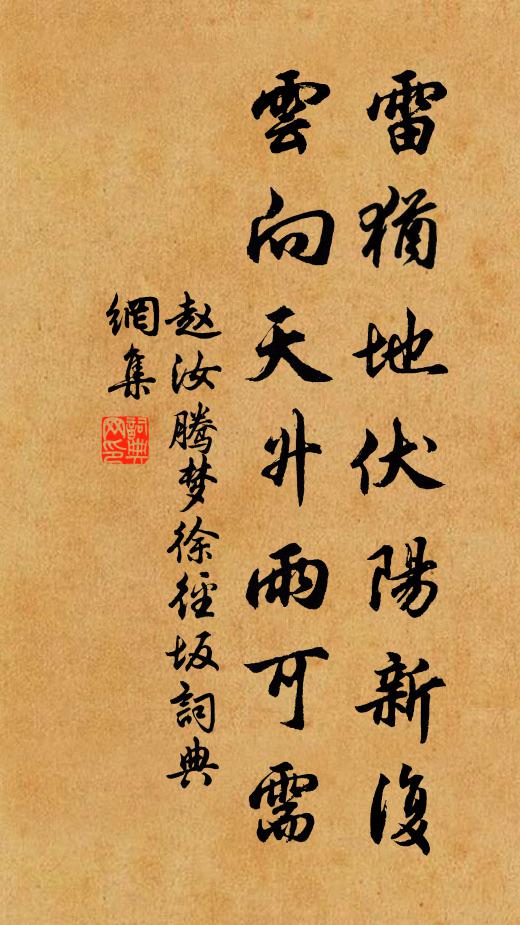 雷猶地伏陽新復
雲向天升雨可需
赵汝腾梦徐径坂詞典
網集
詞典
网印